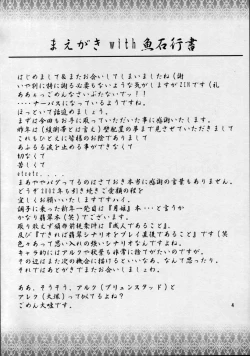 まえがき with 魚石行書
はじめまして&またお会いしてしまいましたね(謝
いや別に特に謝る必要もないような気がしますがZINです(礼
ああもっごめんなさいぶたないでッ!!
・・・・ナーバスになっているようですね。
ほっといて話進めましょう。
まずは今回もお手に取っていただいた事に感謝いたします。
昨年は(緩衝帯とは言え)壁配置の事まで見させていただきまして
これもひとえに皆様のお陰でありまして
あふるる涙が止まる事ができなくて
切なくて
苦しくて
etcetc....
まあややバグってるのはさておき本当に感謝の言葉もありません。
どうぞ2002年も引き続きご愛顧の程を
宜しくお願いいたしますですハイ。
調子に乗った新年一発目は『月姫』本・・・と言うか
かなり翡翠本(笑)でございます。
取り敢えず頒布前提条件は『成人であること』、
及び『できれば翡翠シナリオをプレイ後であること』です(笑
色々あって思い入れの強いシナリオなんですよね。
キャラ的にはアルクや秋葉も非常に捨てがたいのですが、
その辺はまた次の機会に描けるといいなあ、なんて思ったり。
それではまたあとがきでお会いしましょね。
ああ、そうそう、アルク(ブリュンスタッド)と
アレク(大尉)って似てるよね?
ごめん大嘘です。
4